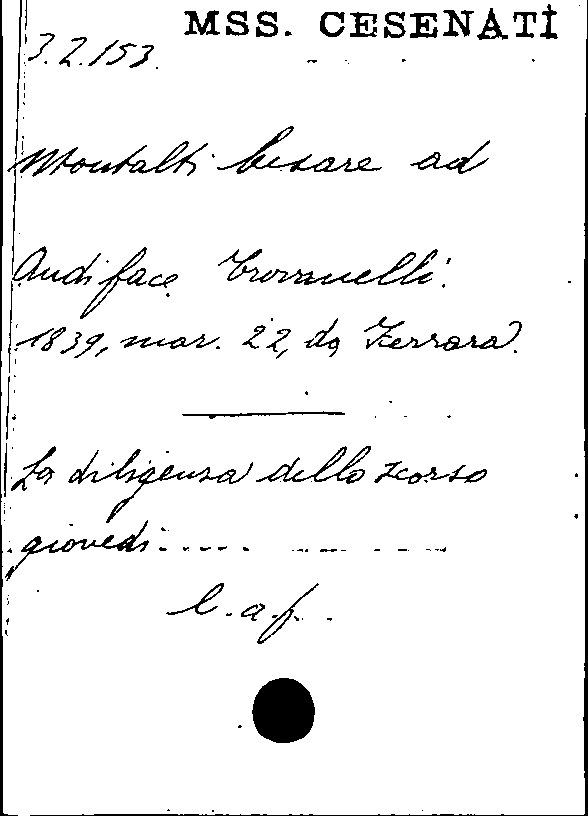 MSS. CESENATI
3.2.153.
Montalti Cesare ad
Audiface Trovanelli.
1839, mar. 22, da Ferrara.
La diligenza dello scorso
giovedì.....
l.a.f.